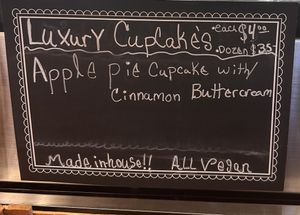 Luxury Cupcakes •each $4.00
•Dozen $35
Apple Pie Cupcake with/
Cinnamon Buttercream
Made inhouse!! All Vegan